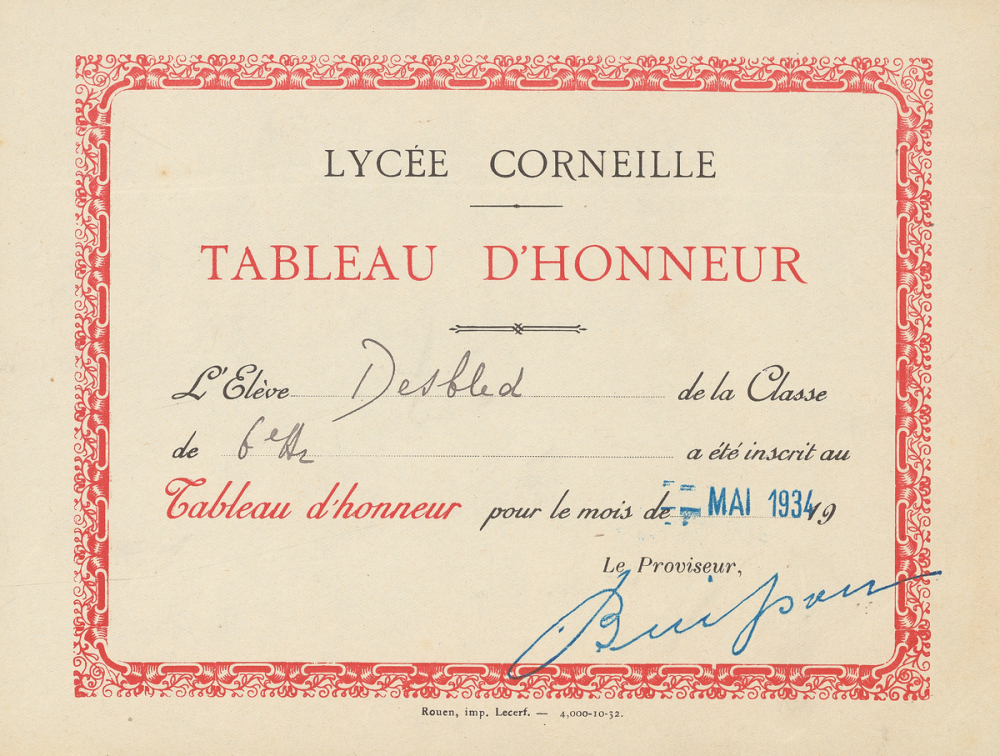 LYCÉE CORNEILLE
TABLEAU D'HONNEUR
L'Elève Desbled de la Classe
de 6e a été inscrit au
Tableau d'honneur pour le mois de MAI 1934 19
Le Proviseur,
Rouen, imp. Lecerf. — 4,000-10-32.